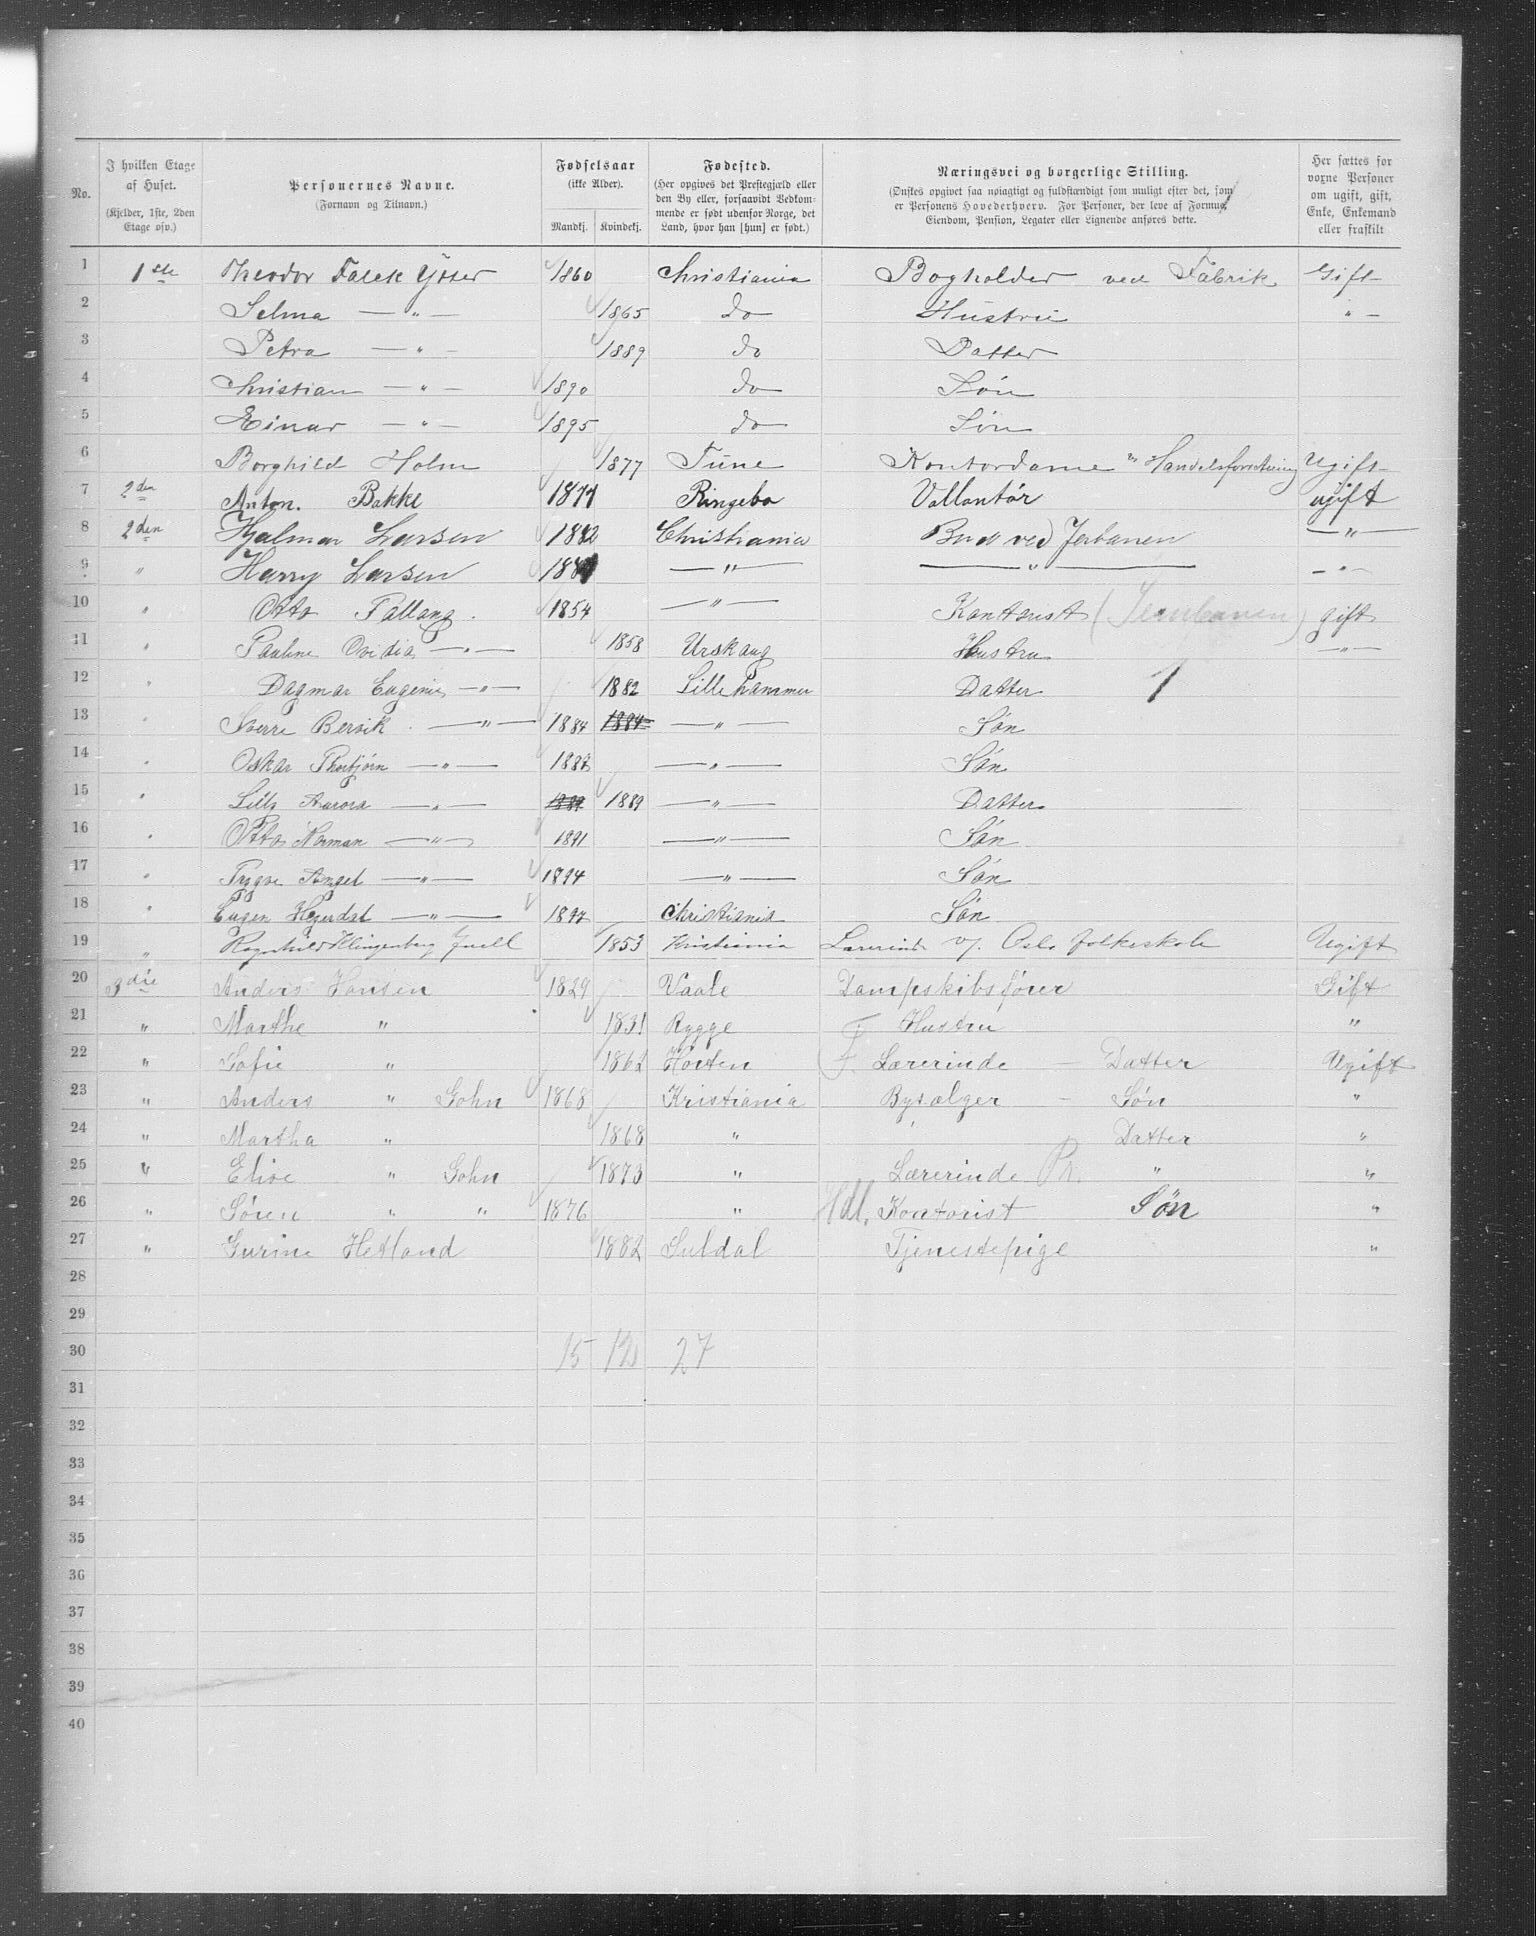 No. | I hvilken Etage af Huset. (Kjelder, 1ste, 2den Etage osv.) | Personernes Navne. (Fornavn og Tilnavn.) | Fødselsaar (ikke Alder). Mandkj. Kvindekj. | Fødested. (Her opgives det Prestegjæld eller den By eller, forsaavidt Vedkommende er født udenfor Norge, det Land, hvor han [hun] er født.) | Næringsvei og borgerlige Stilling. (Ønskes opgivet saa nøiagtigt og fuldstændigt som muligt efter det, som er Personens Hovederhverv. For Personer, der leve af Formue, Eiendom, Pension, Legater eller Lignende anføres dette.) | Her sættes for voxne Personer om ugift, gift, Enke, Enkemand eller fraskilt
1 1ste Theodor Falck 1860 Christiania Bogholder ved Fabrik Gift
2 Selma — " — 1865 do Hustru " —
3 Petra — " — 1889 do Datter
4 Christian — " — 1890 do Søn
5 Einar — " — 1895 do Søn
6 Borghild Holm 1877 Tune Kontordame " Handelsforretning Ugift
7 2den Anton. Bakke 1877 Ringebo Vollontør ugift
8 2den Hjalmar Larsen 1882 Christiania Bud ved Jerbanen — " —
9 " Harry Larsen — " — — " — — " —
10 " Otto Fallang. 1854 — " — Kontorist (Jernbanen) gift
11 " Pauline Ovidia — " — 1858 Urskaug Hustru — " —
12 " Dagmar Eugenie — " — 1882 Lillehammer Datter 1
13 " Sverre Bervik — " — 1884 1884 — " — Søn
14 " Oskar Thorbjørn — " — — " — Søn
15 " Lilly Aurora — " — 1889 1889 — " — Datter
16 " Otto Norman — " — 1891 — " — Søn
17 " Trygve Angel — " — 1894 — " — Søn
18 " Eugen Hejerdal — " — 1897 Christiania Søn
19 " Ragnhild Klingenberg 1853 Kristiania Lærerinde v/ Oslo folkeskole Ugift
20 3die Anders Hansen 1829 Vaale Dampskibsfører Gift
21 " Marthe " 1831 Rygge F Hustru "
22 " Sofie " 1862 Horten F. Lærerinde — Datter Ugift
23 " Anders " Gohn 1868 Kristiania Bysælger — Søn "
24 " Martha " 1868 " Datter "
25 " Elise " Gohn 1873 " Lærerinde Pr. " "
26 " Søren " " 1876 " Hdl. Kontorist Søn "
27 " Gurine Hetland 1882 Suldal Tjenestepige "
28
29
30 15 12 27
31
32
33
34
35
36
37
38
39
40